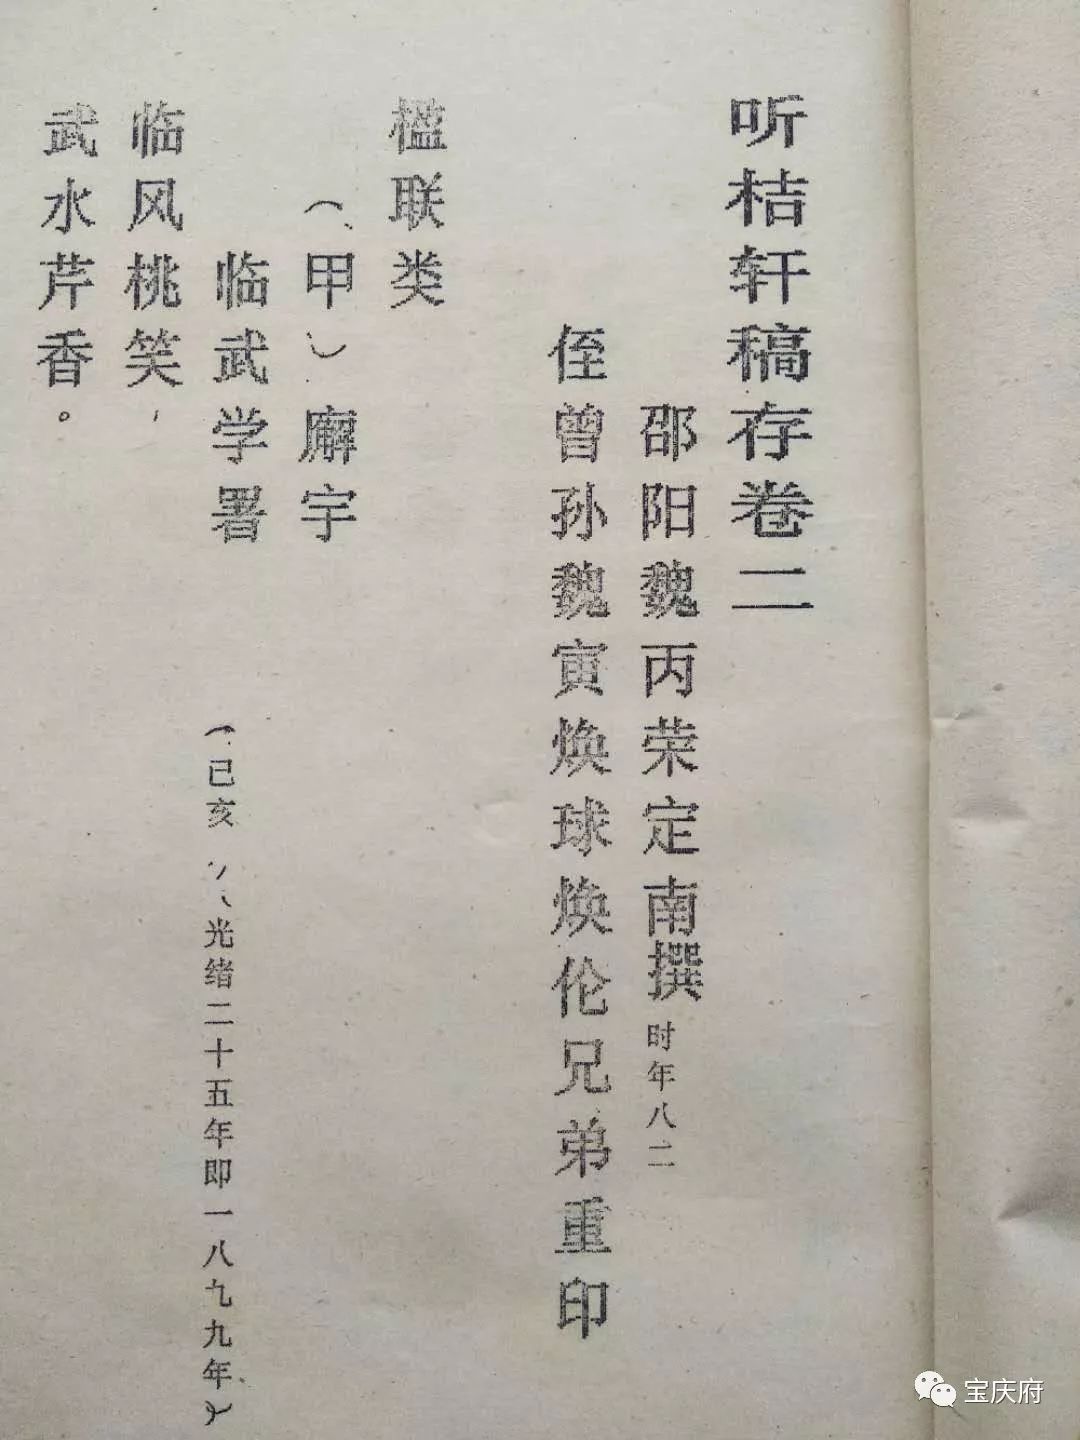 听桔轩稿存卷二
邵阳魏丙荣定南撰时年八二
侄曾孙魏寅焕球焕伦兄弟重印
楹联类
（甲）廨宇
临武学署（己亥 光绪二十五年即一八九九年）
临风桃笑，
武水芹香。
宝庆府